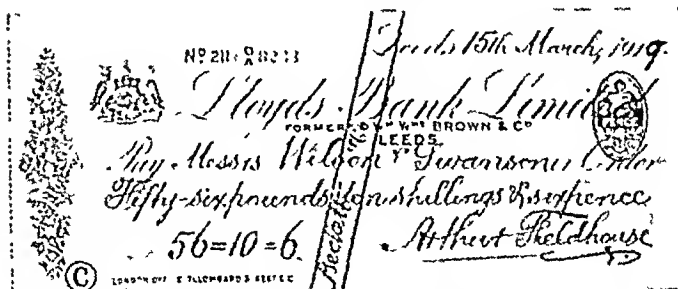 Leeds 15th March, 1919.
Lloyds Bank Limited
FORMERLY Wm Wms BROWN & Co
LEEDS.
Pay Messrs Wilson Swanson Order
Fifty-six pounds ten shillings & sixpence
56=10=6.
Arthur Fieldhouse
©